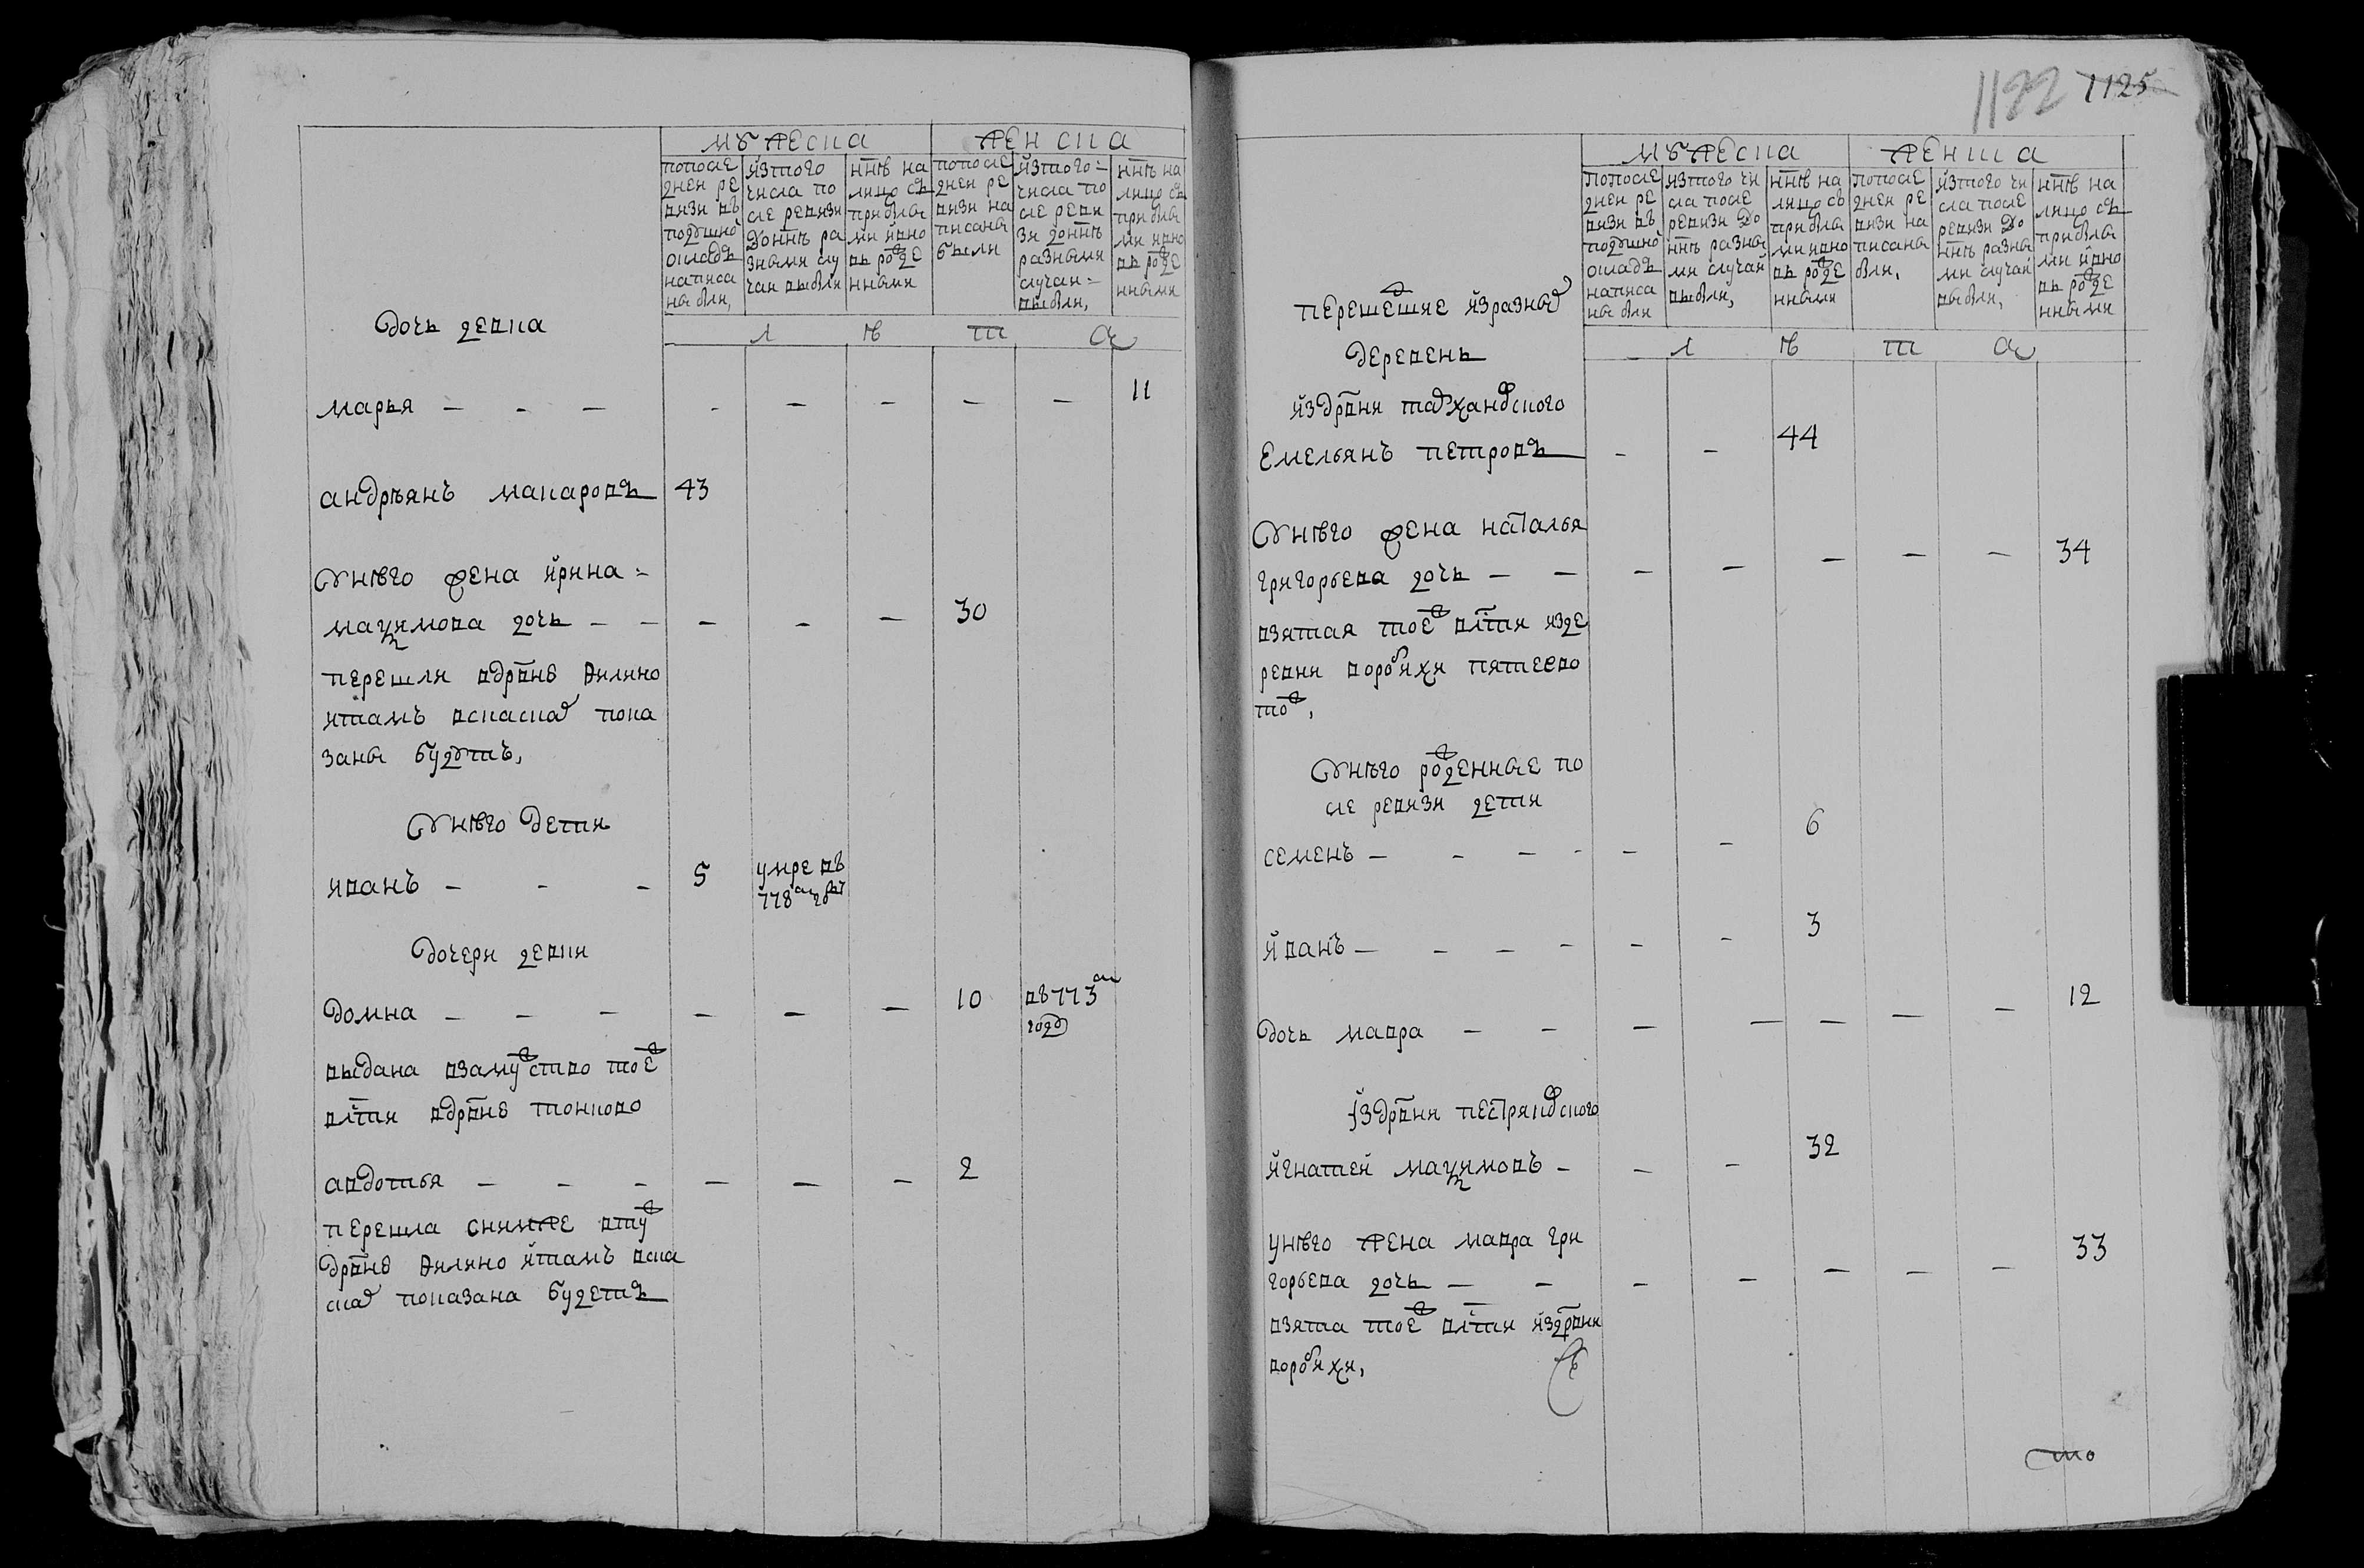 мужеска
женска
попосле
дней ре
визи въ
подушно
окладъ
написа
ны были,
изтого
числа по
сле ревизи
доннѣ ра
зными слу
чаи выбыли
ннѣ на
лицо съ
прибылы
ми ивно
вь рожде
нными
попосле
дней ре
визи на
писаны
были
изтого
числа по
сле реви
зи доннѣ
разными
случаи
выбыли,
ннѣ на
лицо съ
прибылы
ми ивно
вь рожде
нными
л ѣ т а
дочь девка
марья — - — - — - — — 11
андреянъ макаровъ 43
Унѣго жена ирина
маѯимова дочь — — — - — 30
перешли вдрвню вялино
итамъ вскаскаꙵ пока
заны будутъ,
Унѣго дети
иванъ — - — 5 умре въ
778м году
дочери девки
домна — — — — — — 10 въ 773м
году
выдана взамужство тоеж
влсти вдрвню тонково
авдотья — - - — — — 2
перешла снимиже втуж
дрвню вялино итамъ вска
скаꙵ показана будетъ
1122 1125
мужеска
женска
попосле
дней ре
визи въ
подушной
окладъ
написа
ны были
изтого чи
сла после
ревизи до
ннѣ разны
ми случаи
выбыли,
ннѣ на
лицо съ
прибылы
ми ивно
вь рожде
нными
попосле
дней ре
визи на
писаны
были,
изтого чи
сла после
ревизи до
ннѣ разны
ми случаи
выбыли,
ннѣ на
лицо съ
прибылы
ми ивно
вь рожде
нными
л ѣ т а
перешедшие изразныхъ
деревень
издрвни
емельянъ петровъ - — 44
Унѣго жена наталья
григорьева дочь — — — — — — — 34
взятая тоеж влсти изде
ревни воробихи
Унѣго рожденные по
сле ревизи дети
семенъ — - — - — - 6
иванъ — - — - - - 3
дочь мавра — - — — — — — 12
издрвни
игнатей маѯимовъ - - - 32
унѣго жена мавра гри
горьева дочь — - - — — — — 33
взята тоеж влсти издрвни
воробихи,